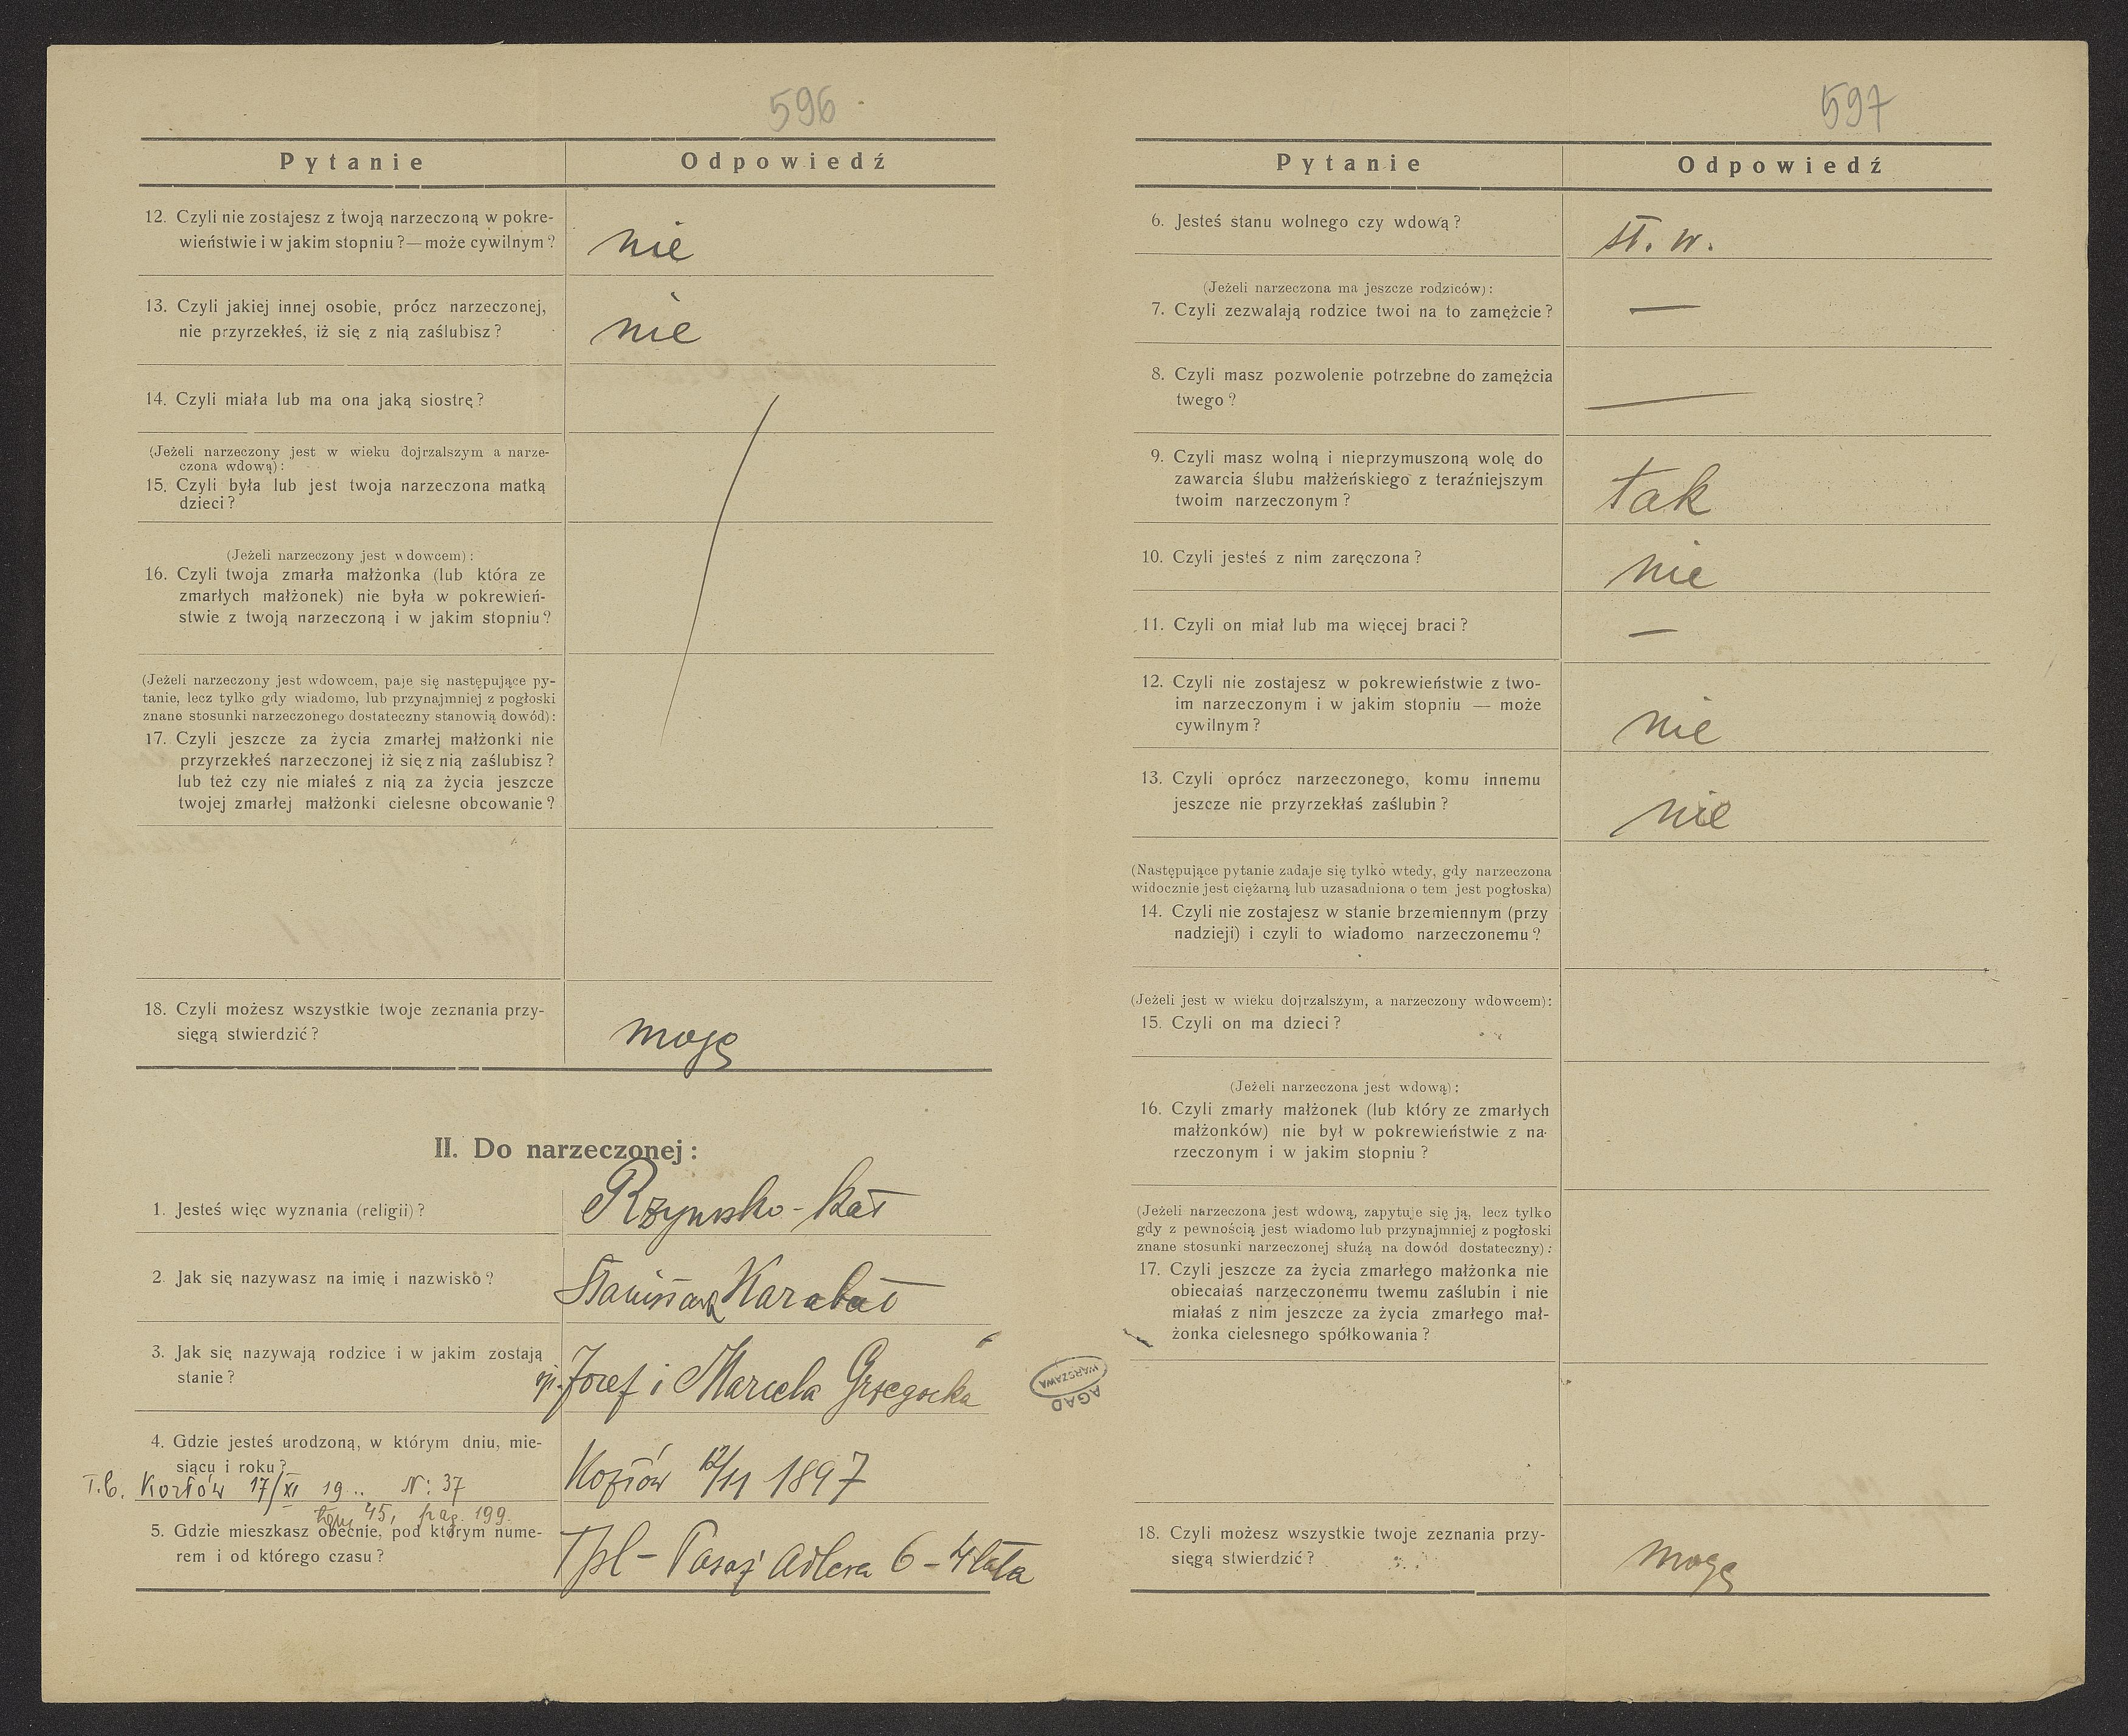 596
Pytanie Odpowiedź
12. Czyli nie zostajesz z twoją narzeczoną w pokre-
wieństwie i w jakim stopniu?—może cywilnym?
nie
13. Czyli jakiej innej osobie, prócz narzeczonej,
nie przyrzekłeś, iż się z nią zaślubisz?
nie
14. Czyli miała lub ma ona jaką siostrę?
(Jeżeli narzeczony jest w wieku dojrzalszym a narze-
czona wdową):
15. Czyli była lub jest twoja narzeczona matką
dzieci?
(Jeżeli narzeczony jest wdowcem):
16. Czyli twoja zmarła małżonka (lub która ze
zmarłych małżonek) nie była w pokrewień-
stwie z twoją narzeczoną i w jakim stopniu?
(Jeżeli narzeczony jest wdowcem, paje się następujące py-
tanie, lecz tylko gdy wiadomo, lub przynajmniej z pogłoski
znane stosunki narzeczonego dostateczny stanowią dowód):
17. Czyli jeszcze za życia zmarłej małżonki nie
przyrzekłeś narzeczonej iż się z nią zaślubisz?
lub też czy nie miałeś z nią za życia jeszcze
twojej zmarłej małżonki cielesne obcowanie?
18. Czyli możesz wszystkie twoje zeznania przy-
sięgą stwierdzić?
mogę
II. Do narzeczonej:
1. Jesteś więc wyznania (religii)?
Rzymsko-kat
2. Jak się nazywasz na imię i nazwisko?
Stanisława Karabat
3. Jak się nazywają rodzice i w jakim zostają
stanie?
Józef i Marcela Grzegocka
4. Gdzie jesteś urodzoną, w którym dniu, mie-
siącu i roku?
Kozłów 12/11 1897
T.b. Kozłów 17/XI 19.. N: 37
Tom 45, pag. 199.
5. Gdzie mieszkasz obecnie, pod którym nume-
rem i od którego czasu?
Tpl - Pasaż Adlera 6 - 4 lata
AGAD
WARSZAWA
597
Pytanie Odpowiedź
6. Jesteś stanu wolnego czy wdową?
st. w.
(Jeżeli narzeczona ma jeszcze rodziców):
7. Czyli zezwalają rodzice twoi na to zamężcie?
—
8. Czyli masz pozwolenie potrzebne do zamężcia
twego?
—
9. Czyli masz wolną i nieprzymuszoną wolę do
zawarcia ślubu małżeńskiego z teraźniejszym
twoim narzeczonym?
tak
10. Czyli jesteś z nim zaręczona?
nie
11. Czyli on miał lub ma więcej braci?
—
12. Czyli nie zostajesz w pokrewieństwie z two-
im narzeczonym i w jakim stopniu — może
cywilnym?
nie
13. Czyli oprócz narzeczonego, komu innemu
jeszcze nie przyrzekłaś zaślubin?
nie
(Następujące pytanie zadaje się tylko wtedy, gdy narzeczona
widocznie jest ciężarną lub uzasadniona o tem jest pogłoska)
14. Czyli nie zostajesz w stanie brzemiennym (przy
nadzieji) i czyli to wiadomo narzeczonemu?
(Jeżeli jest w wieku dojrzalszym, a narzeczony wdowcem):
15. Czyli on ma dzieci?
(Jeżeli narzeczona jest wdową):
16. Czyli zmarły małżonek (lub który ze zmarłych
małżonków) nie był w pokrewieństwie z na-
rzeczonym i w jakim stopniu?
(Jeżeli narzeczona jest wdową, zapytuje się ją, lecz tylko
gdy z pewnością jest wiadomo lub przynajmniej z pogłoski
znane stosunki narzeczonej służą na dowód dostateczny):
17. Czyli jeszcze za życia zmarłego małżonka nie
obiecałaś narzeczonemu twemu zaślubin i nie
miałaś z nim jeszcze za życia zmarłego mał-
żonka cielesnego spółkowania?
18. Czyli możesz wszystkie twoje zeznania przy-
sięgą stwierdzić?
mogę